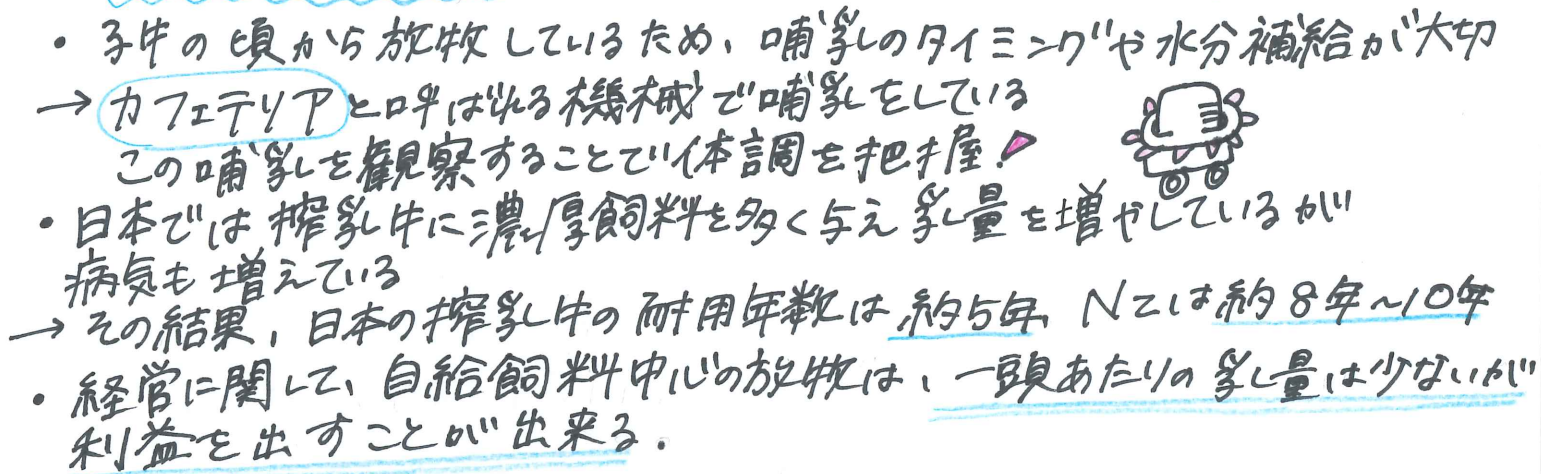 ・子牛の頃から放牧しているため、哺乳のタイミングや水分補給が大切
→カフェテリアと呼ばれる機械で哺乳をしている
この哺乳を観察することで体調を把握!
・日本では搾乳牛に濃厚飼料を多く与え乳量を増やしているが
病気も増えている
→その結果、日本の搾乳牛の耐用年数は約5年、NZは約8年~10年
・経営に関して、自給飼料中心の放牧は、一頭あたりの乳量は少ないが
利益を出すことが出来る.